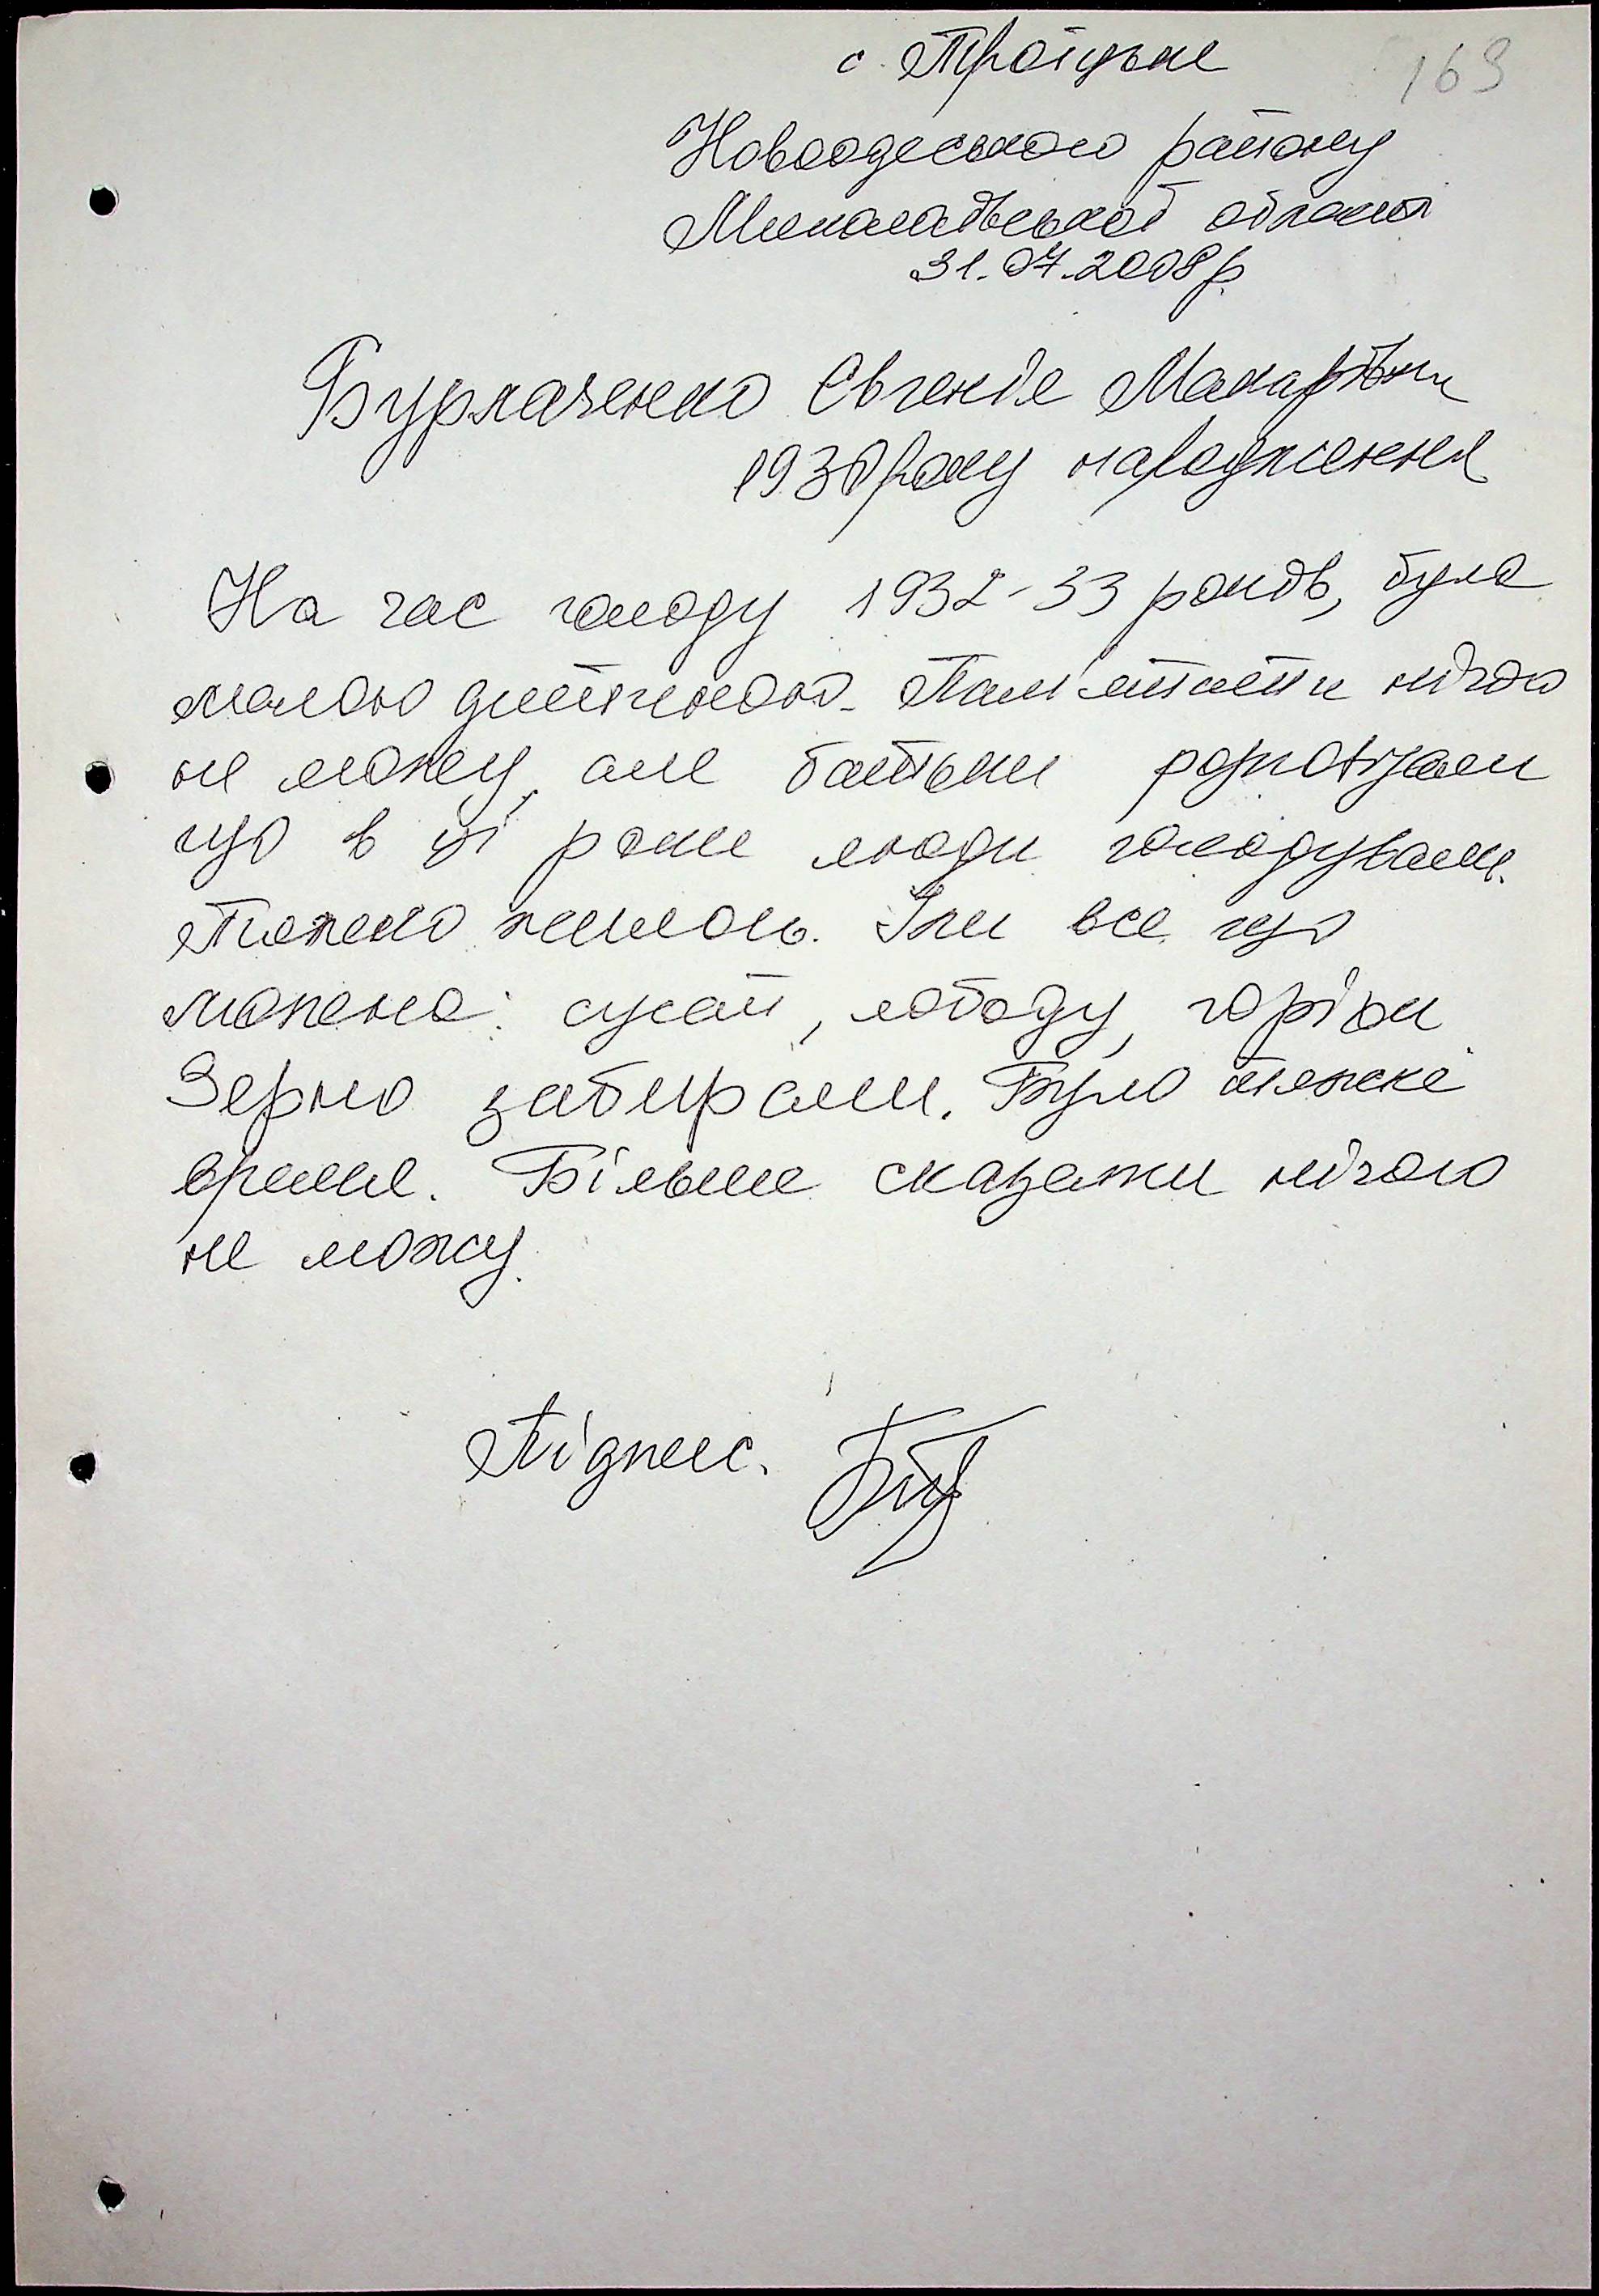 с. Троїцьке
169
Новоодеського району
Миколаївської області
31.07.2008р.
Бурлаченко Євгенія Макарівни
1930 року народження
На час голоду 1932-33 років, була
малою дитиною. Пам'ятати нічого
не можу, але батьки розповідали
що в ці роки люди голодували.
Тяжко жилось. Їли все що
можна: сусай, лободу, горіхи
Зерно забирали. Було тяжке
время. Більше сказати нічого
не можу.
Підпис.